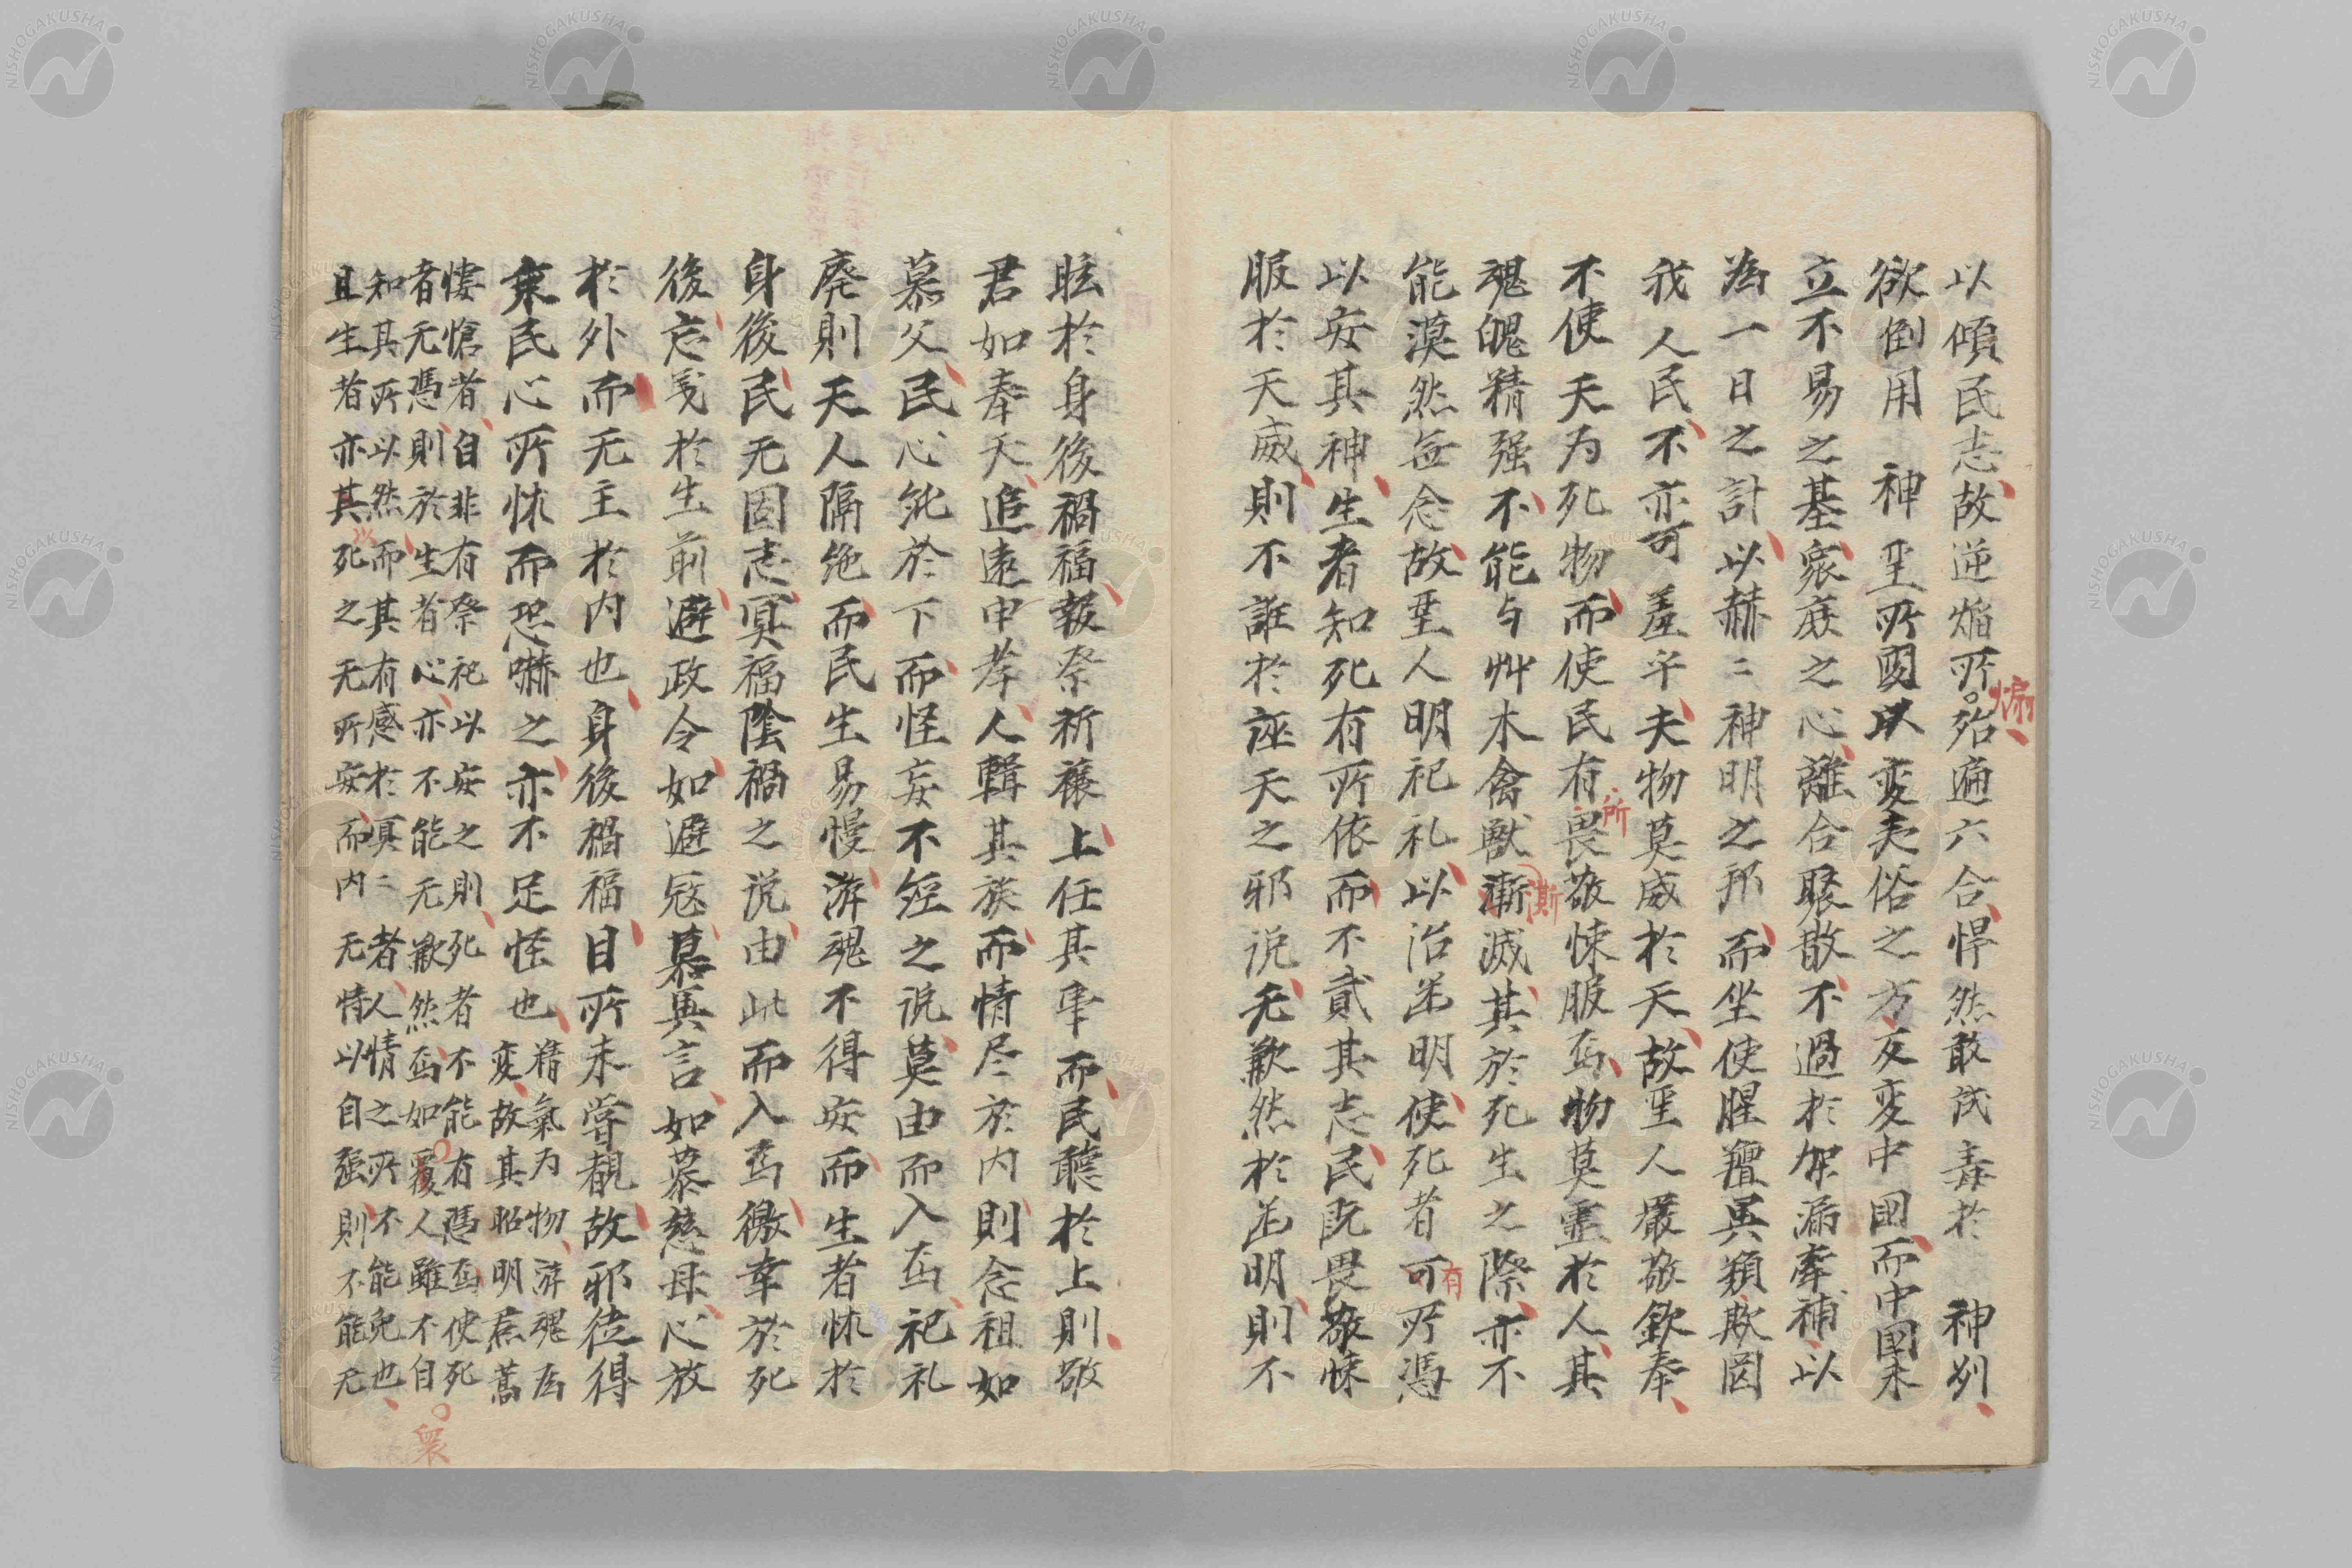 以傾民志故逆焰所殆遍六合悍然敢試毒於　神州
煽
欲倒用　神聖所圖以変夷俗之方反変中國而中國未
立不易之基衆庶之心離合聚散不過於架漏牽補以
為一日之計以赫〻神明之邦而坐使腥羶異類欺罔
我人民不亦可羞乎夫物莫威於天故聖人嚴敬欽奉
不使天为死物而使民有畏敬悚服焉物莫靈於人其
所
魂魄精强不能与艸木禽獣漸滅其於死生之際亦不
澌
能漠然無念故聖人明祀礼以治幽明使死者可所憑
有
以安其神生者知死有所依而不貳其志民既畏敬悚
服於天威則不誑於誣天之邪说无歉然於幽明則不
眩於身後禍福報祭祈禳上任其事而民聽於上則敬
君如奉天追遠申孝人輯其族而情尽於内則念祖如
慕父民心純於下而怪妄不経之说莫由而入焉祀礼
廃則天人隔绝而民生易慢游魂不得安而生者怵於
身後民无固志冥福陰禍之说由此而入焉徼幸於死
後忘義於生前避政令如避寇慕異言如慕慈母心放
於外而无主於内也身後禍福目所未嘗覩故邪徒得
乗民心所怵而恐嚇之亦不足怪也
精氣为物游魂為
変故其昭明焄蒿
悽愴者自非有祭祀以安之則死者不能有憑焉使死
者无憑則於生者心亦不能无歉然焉如覆人雖不自
衆
知其所以然而其有感於冥〻者人情之所不能免也
且生者亦其死之无所安而内无情以自强則不能无
以